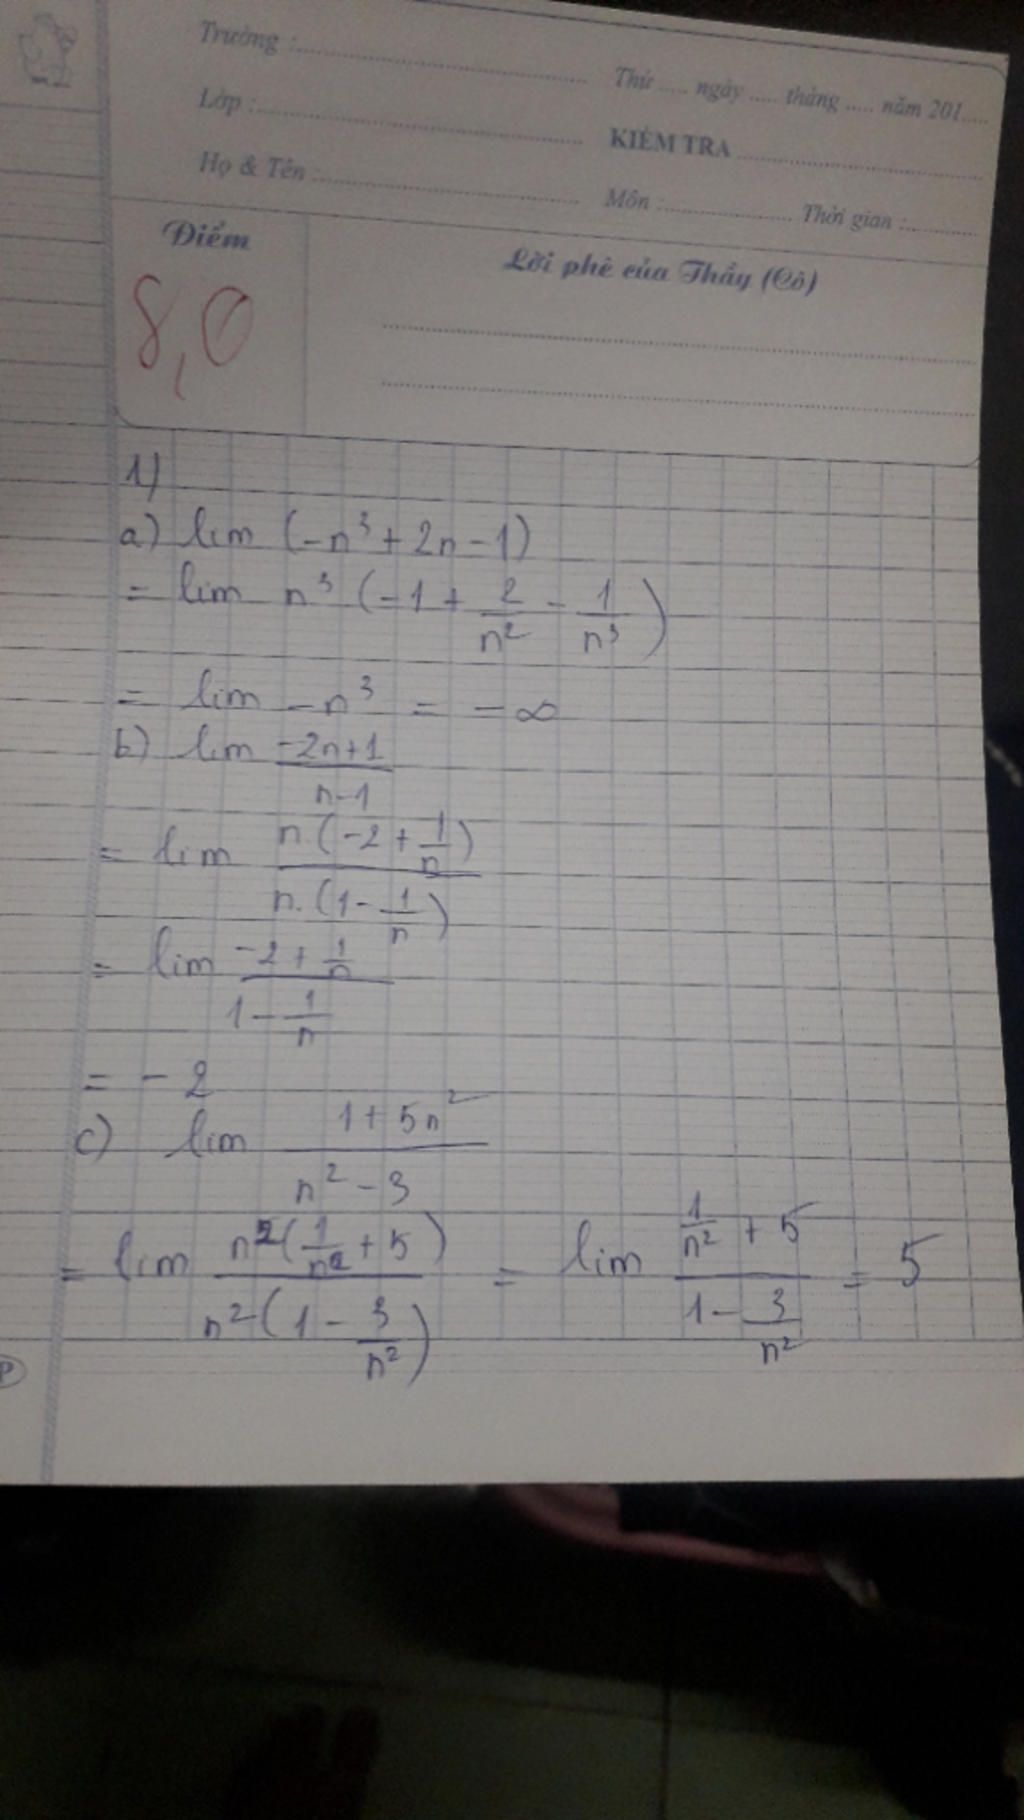 Trường :
Thứ ..... ngày ..... tháng ..... năm 201.....
Lớp :
KIỂM TRA
Họ & Tên :
Môn :
Thời gian :
Điểm
Lời phê của Thầy (Cô)
8,0
1)
a) lim (-n³ + 2n - 1)
= lim n³ (-1 + 2/n² - 1/n³)
= lim -n³ = -∞
b) lim (-2n+1)/(n-1)
= lim n.(-2 + 1/n) / n.(1 - 1/n)
= lim (-2 + 1/n)/(1 - 1/n)
= -2
c) lim (1 + 5n²)/(n² - 3)
= lim n²(1/n² + 5) / n²(1 - 3/n²) = lim (1/n² + 5)/(1 - 3/n²) = 5